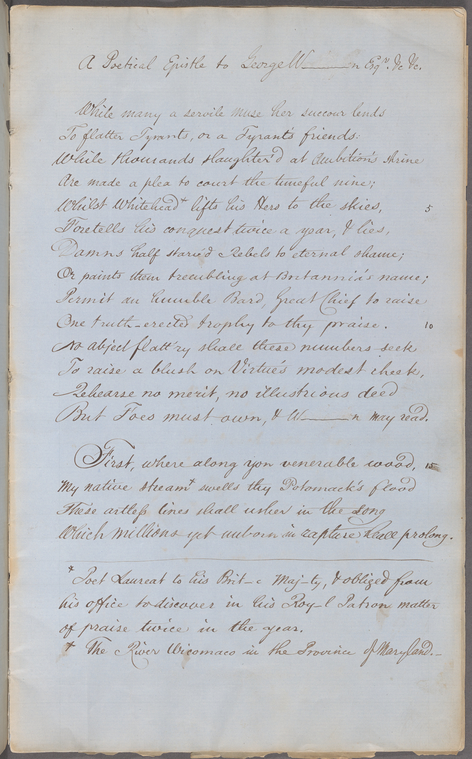 A Poetical Epistle to George W——n Esqr. &c &c.
While many a servile muse her succour lends
To flatter Tyrants, or a Tyrant's friends:
While thousands slaughter'd at Ambition's shrine
Are made a plea to court the tuneful nine;
Whilst Whitehead* lifts his Hero to the skies, 5
Foretells his conquest twice a year, & lies,
Damns half starv'd Rebels to eternal shame;
Or paints them trembling at Britannia's name;
Permit an humble Bard, Great Chief to raise
One truth-erected trophy to thy praise. 10
No abject flatt'ry shall these numbers seek
To raise a blush on Virtue's modest cheek,
Rehearse no merit, no illustrious deed
But Foes must own, & W——n may read.
First, where along yon venerable wood, 15
My native stream† swells thy Potomack's flood
These artless lines shall usher in the song
Which millions yet unborn in rapture shall prolong.
* Poet Laureat to his Brit-c Maj-ty, & obliged from
his office to discover in his Roy-l Patron matter
of praise twice in the year.
† The River Wicomaco in the Province of Maryland.—